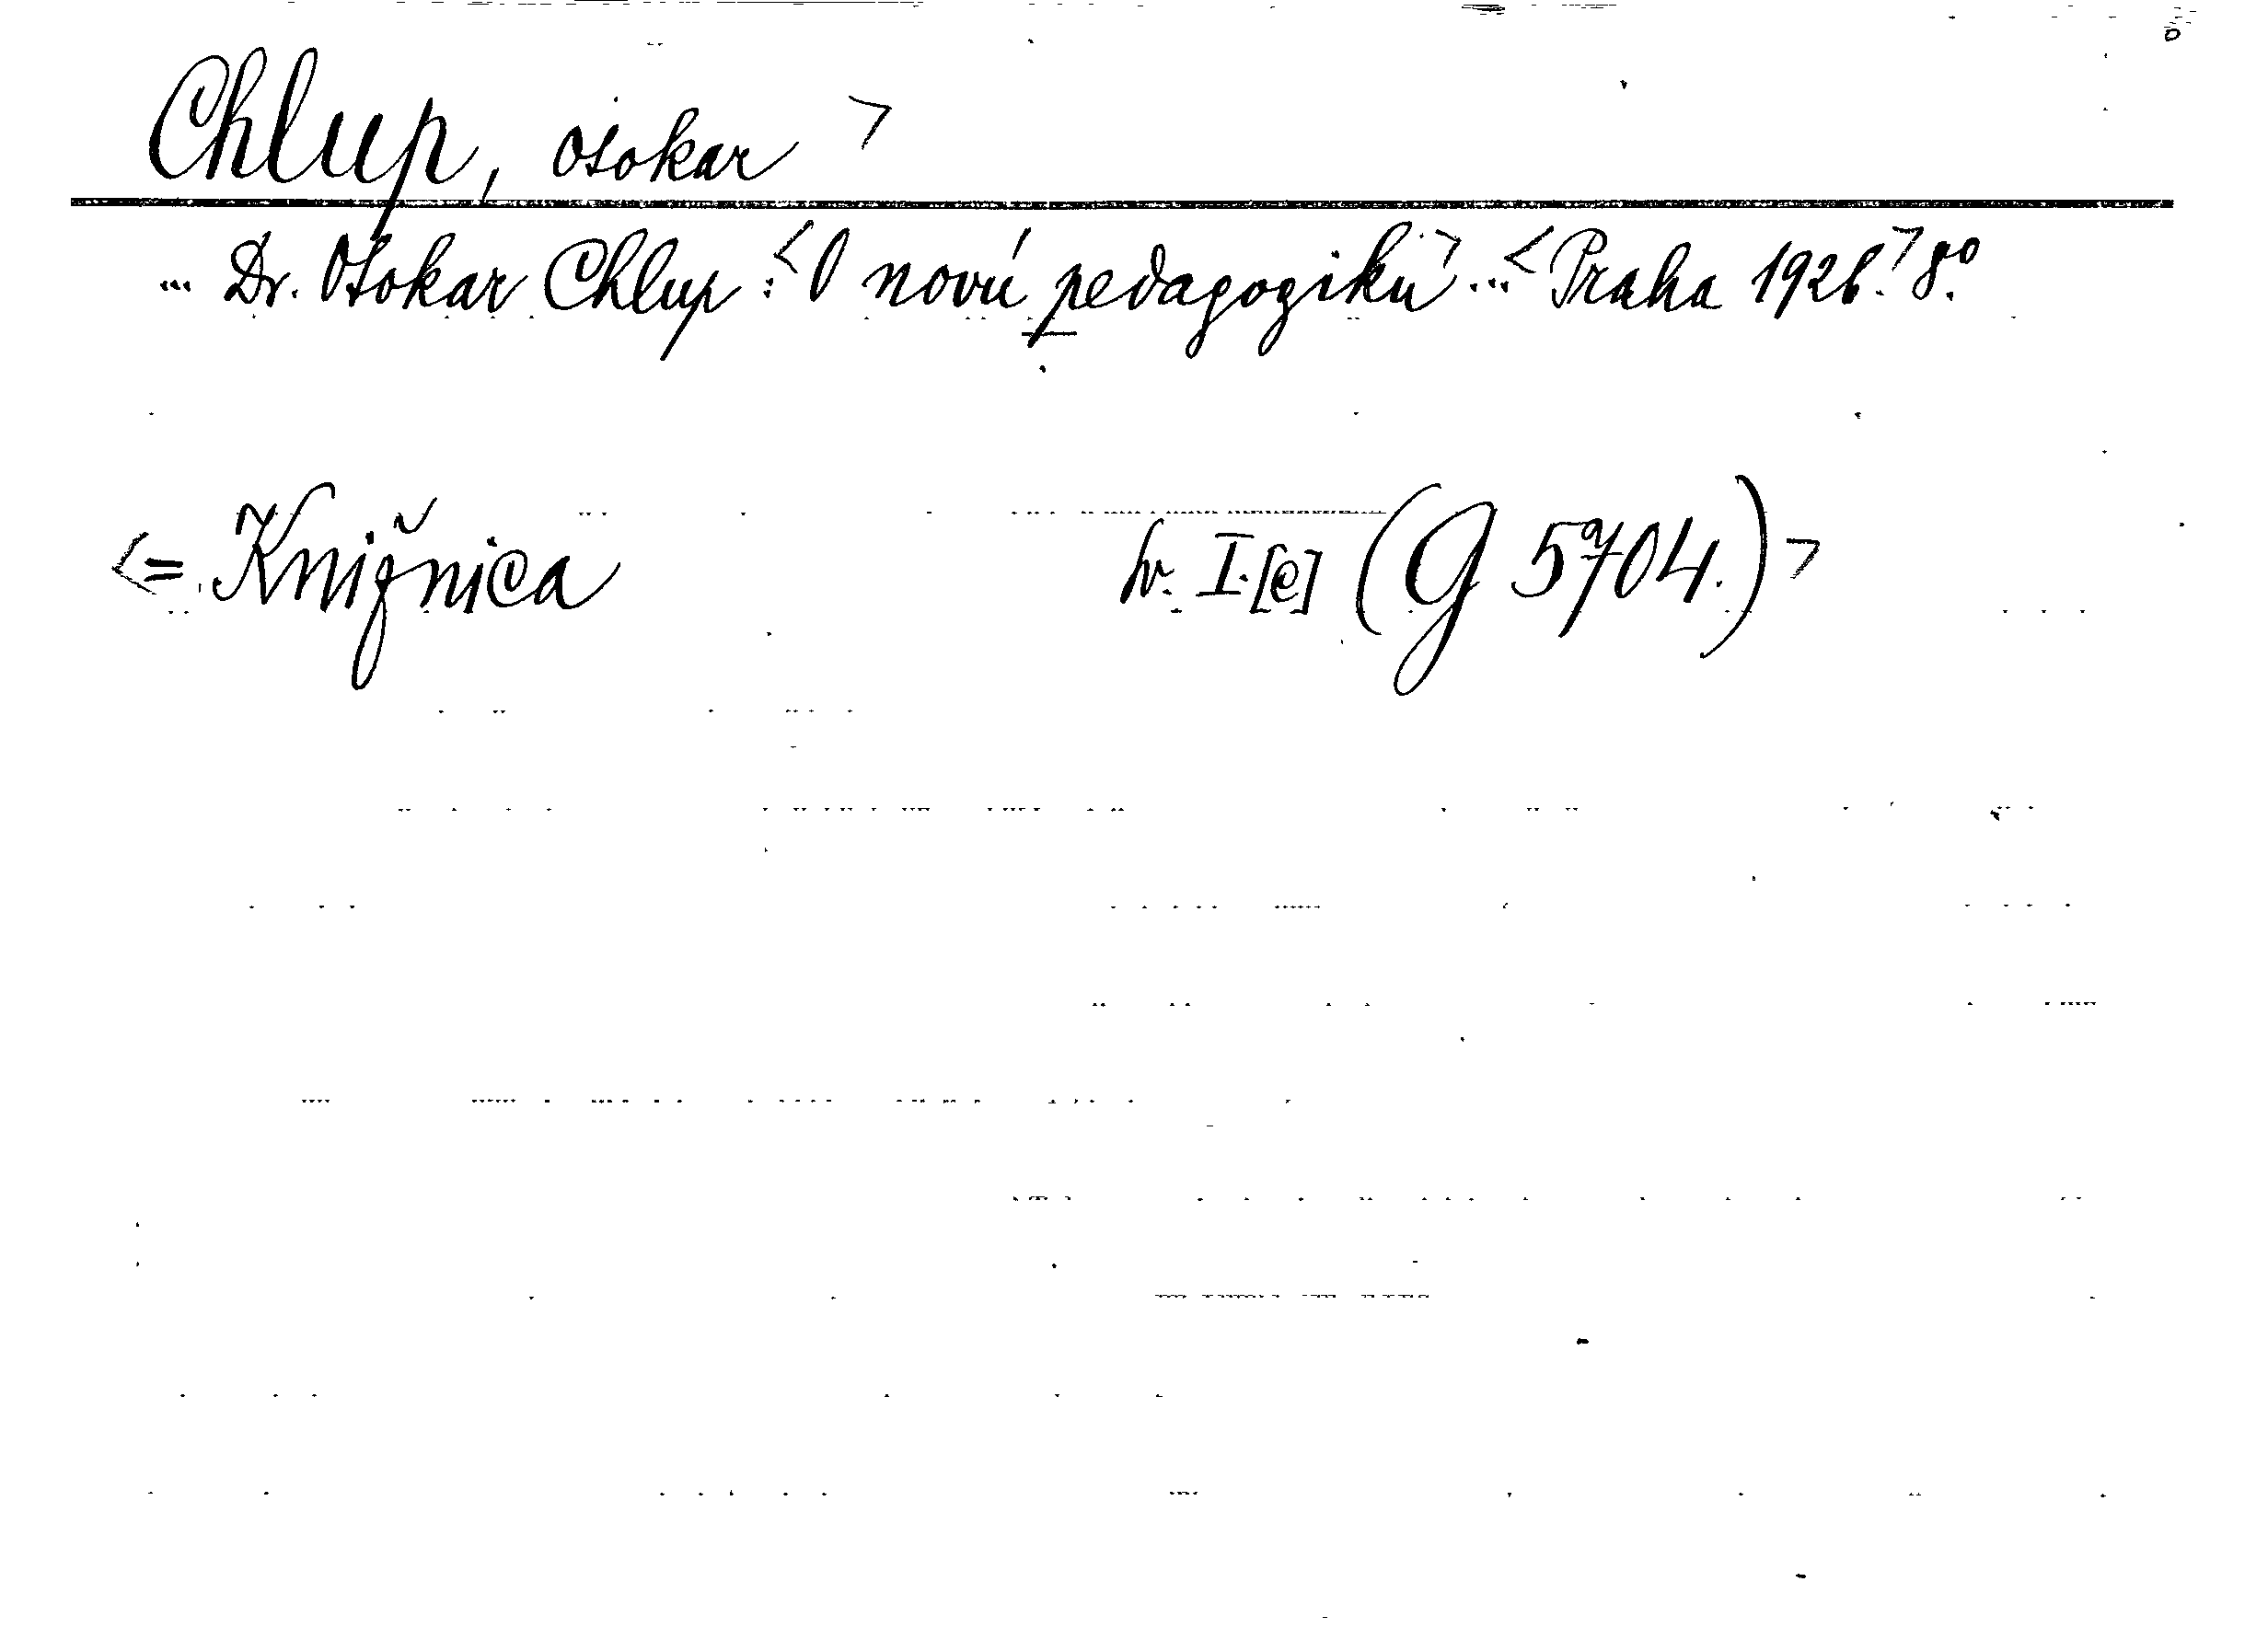 Chlup, Otokar >
... Dr. Otokar Chlup : <O novú pedagogiku> ... <Praha 1926.> 8°.
<= Knižnica hr. I. [e] (G 5704.)>